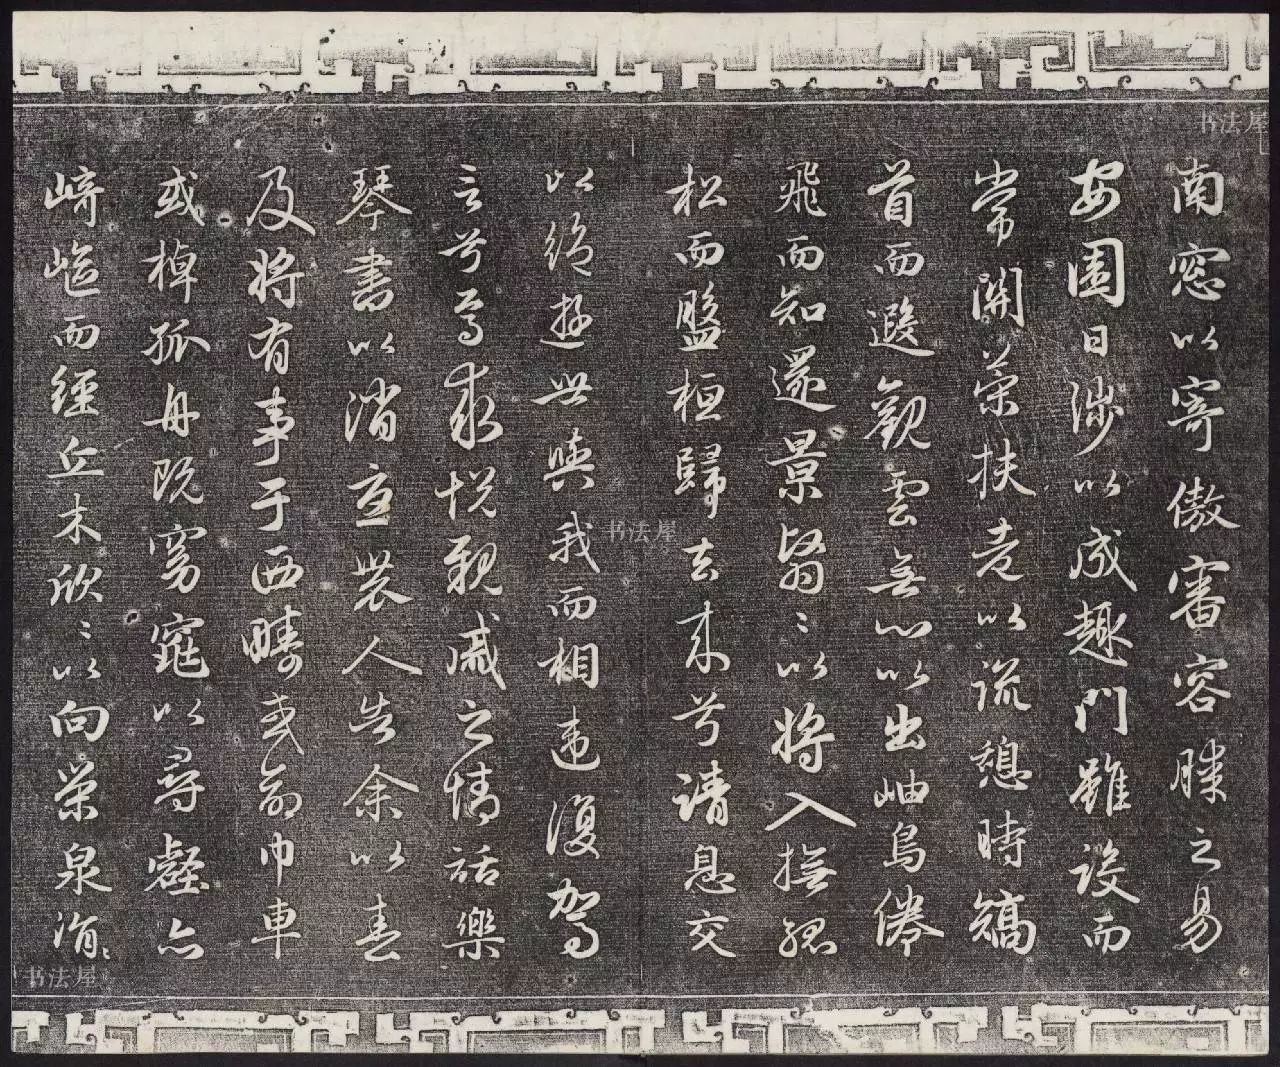 南窓以寄傲審容膝之易
安園日涉以成趣門雖設而
常関策扶老以流憩時矯
首而遐觀雲無心以出岫鳥倦
飛而知還景翳〻以將入撫孤
松而盤桓歸去来兮請息交
以絶遊世與我而相違復駕
言兮焉求悅親戚之情話樂
琴書以消憂農人告余以春
及將有事于西疇或命巾車
或棹孤舟既窈窕以尋壑亦
崎嶇而經丘木欣〻以向榮泉涓〻
书法屋
书法屋
书法屋